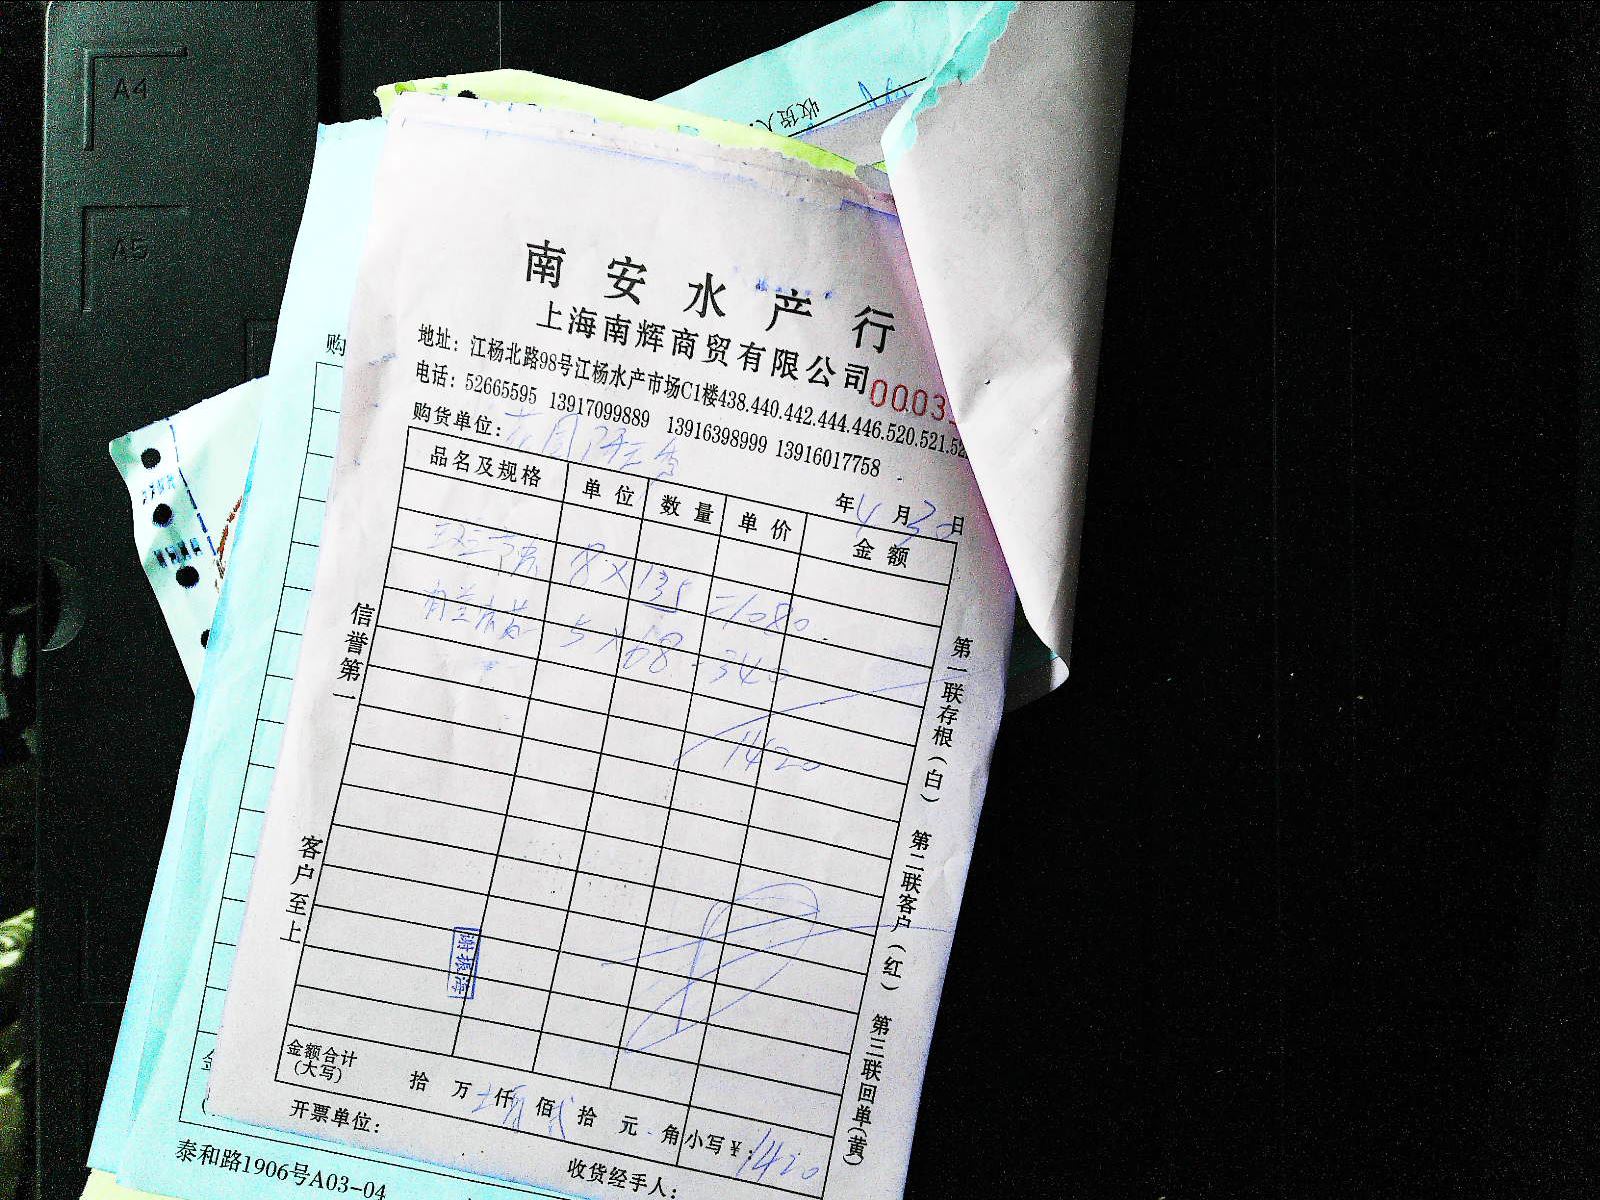 A4
A5
收货人
南安水产行
上海南辉商贸有限公司
0003
地址：江杨北路98号江杨水产市场C1楼438.440.442.444.446.520.521.52
电话：52665595 13917099889 13916398999 13916017758
购货单位：
购
年4月30日
品名及规格 单位 数量 单价 金额
8×135=1080
5×68=340
1420
信誉第一
客户至上
第一联存根（白） 第二联客户（红） 第三联回单（黄）
金额合计（大写） 拾 万 仟 佰 拾 元 角 小写¥：1420
开票单位：
收货经手人：
泰和路1906号A03-04